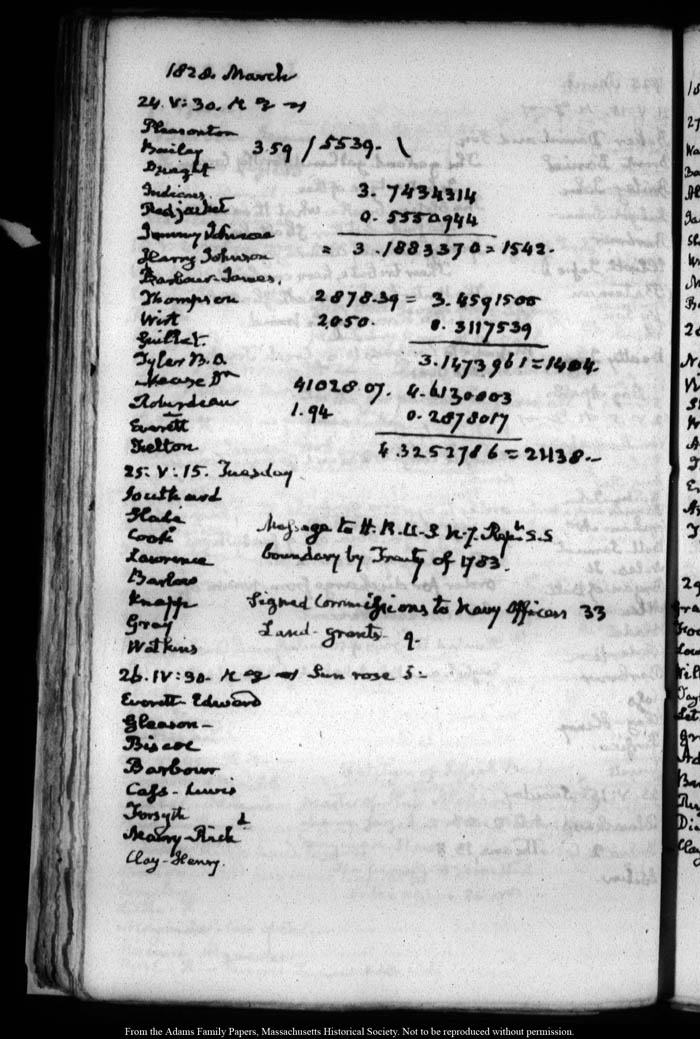 1828. March
24. V:30.
Pleasonton
Bailey 3.59 / 5539. \
Dwight
Indians. 3. 7434314
Redjacket 0. 5550944
Jemmy Johnson
Harry Johnson = 3 .1883370 = 1542.
Barbour-James.
Thompson 2878.39 = 3.4591500
Wirt 2050. 0.3117539
Tyler B.O. 3.1473961 = 1404.
Mease Dr. 4102807. 4.6130003
Roberdeau 1.94 0.2878017
Everett
Felton 4.3252786 = 21138.
25: V:15. Tuesday
Southard
Slade
Cook Message to H.R.U.S N.7. Reph S.S
Lawrence boundary by Treaty of 1783.
Barlow
Knapp Signed Commissions to Navy Officers 33
Gray Land-grants 9-
Watkins
26. IV:30. Sun rose 5:
Everett Edward
Gleason-
Biscoe
Barbour
Cass-Lewis
Forsyth
Mary-Rickd
Clay-Henry.
From the Adams Family Papers, Massachusetts Historical Society. Not to be reproduced without permission.